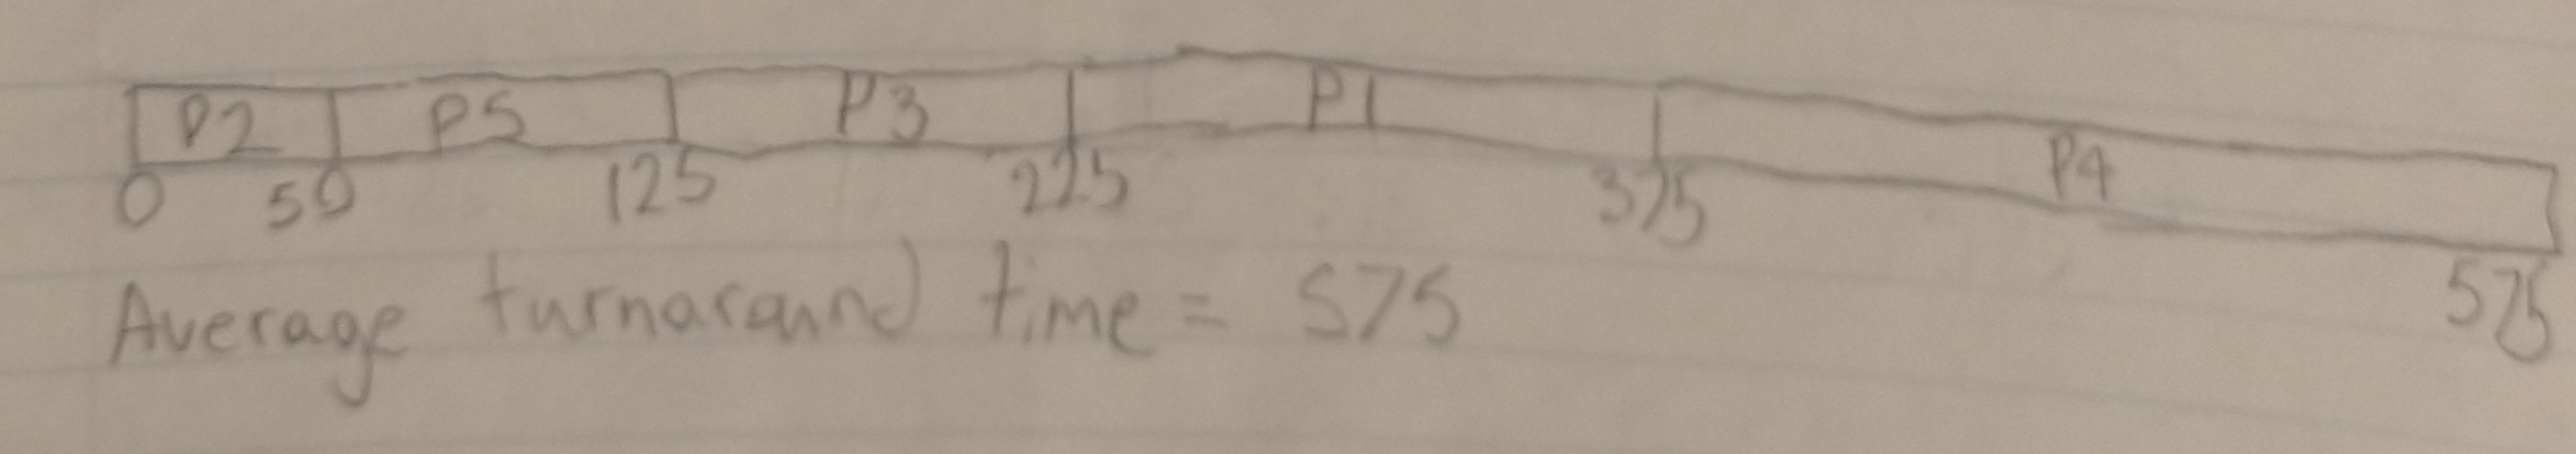 P2 P5 P3 P1 P4
0 50 125 225 375 575
Average turnaround time = 575